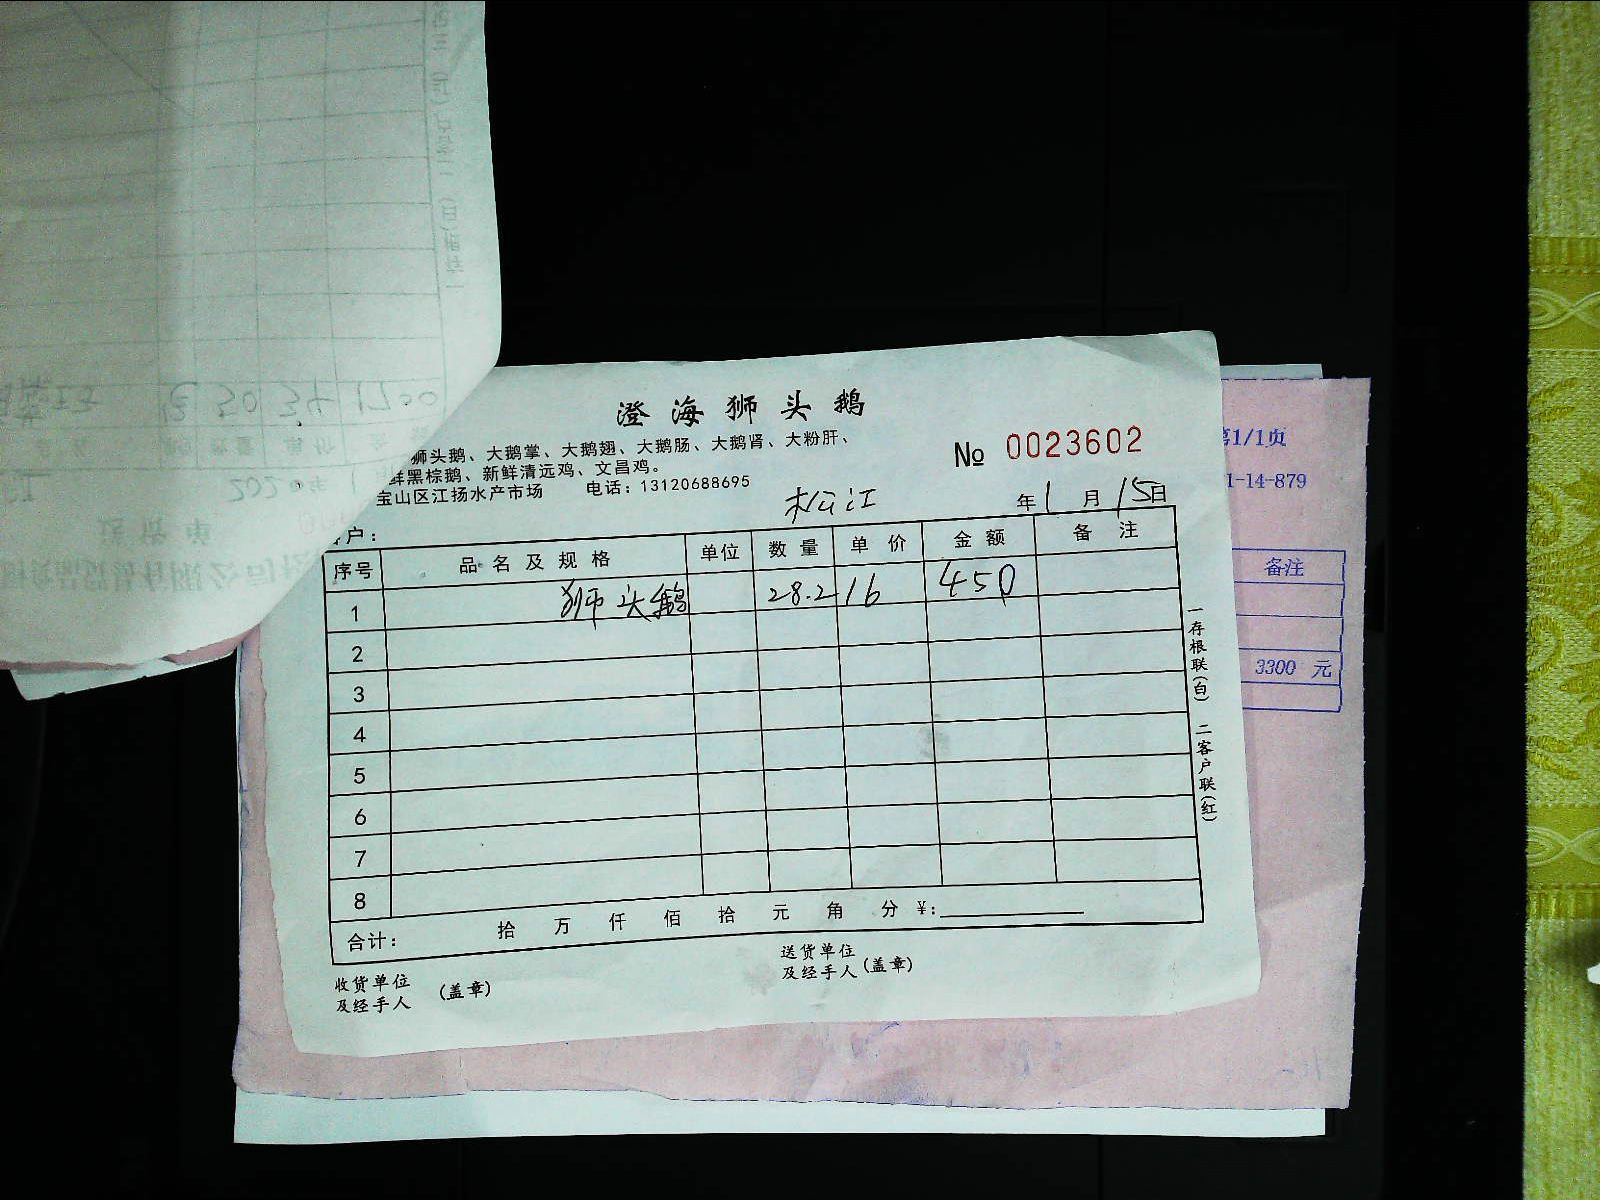 澄海狮头鹅
狮头鹅、大鹅掌、大鹅翅、大鹅肠、大鹅肾、大粉肝、
鲜黑棕鹅、新鲜清远鸡、文昌鸡。
宝山区江扬水产市场 电话：13120688695
№ 0023602
松江
年1月15日
客户：
序号 品名及规格 单位 数量 单价 金额 备注
1 狮头鹅 28.2 16 450
2
3
4
5
6
7
8
合计： 拾 万 仟 佰 拾 元 角 分 ¥:
收货单位
及经手人 (盖章)
送货单位
及经手人 (盖章)
一存根联(白) 二客户联(红)
第1/1页
1-14-879
备注
3300 元